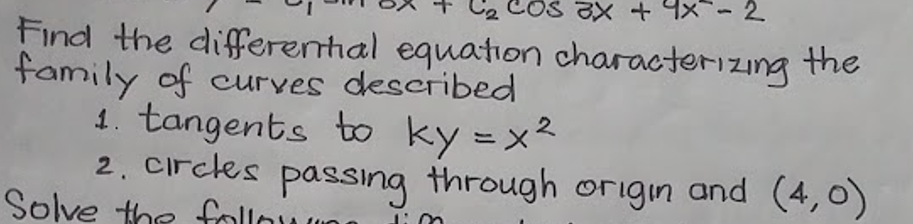 C₂ cos 3x + 9x² - 2
Find the differential equation characterizing the
family of curves described
1. tangents to ky = x²
2. circles passing through origin and (4,0)
Solve the